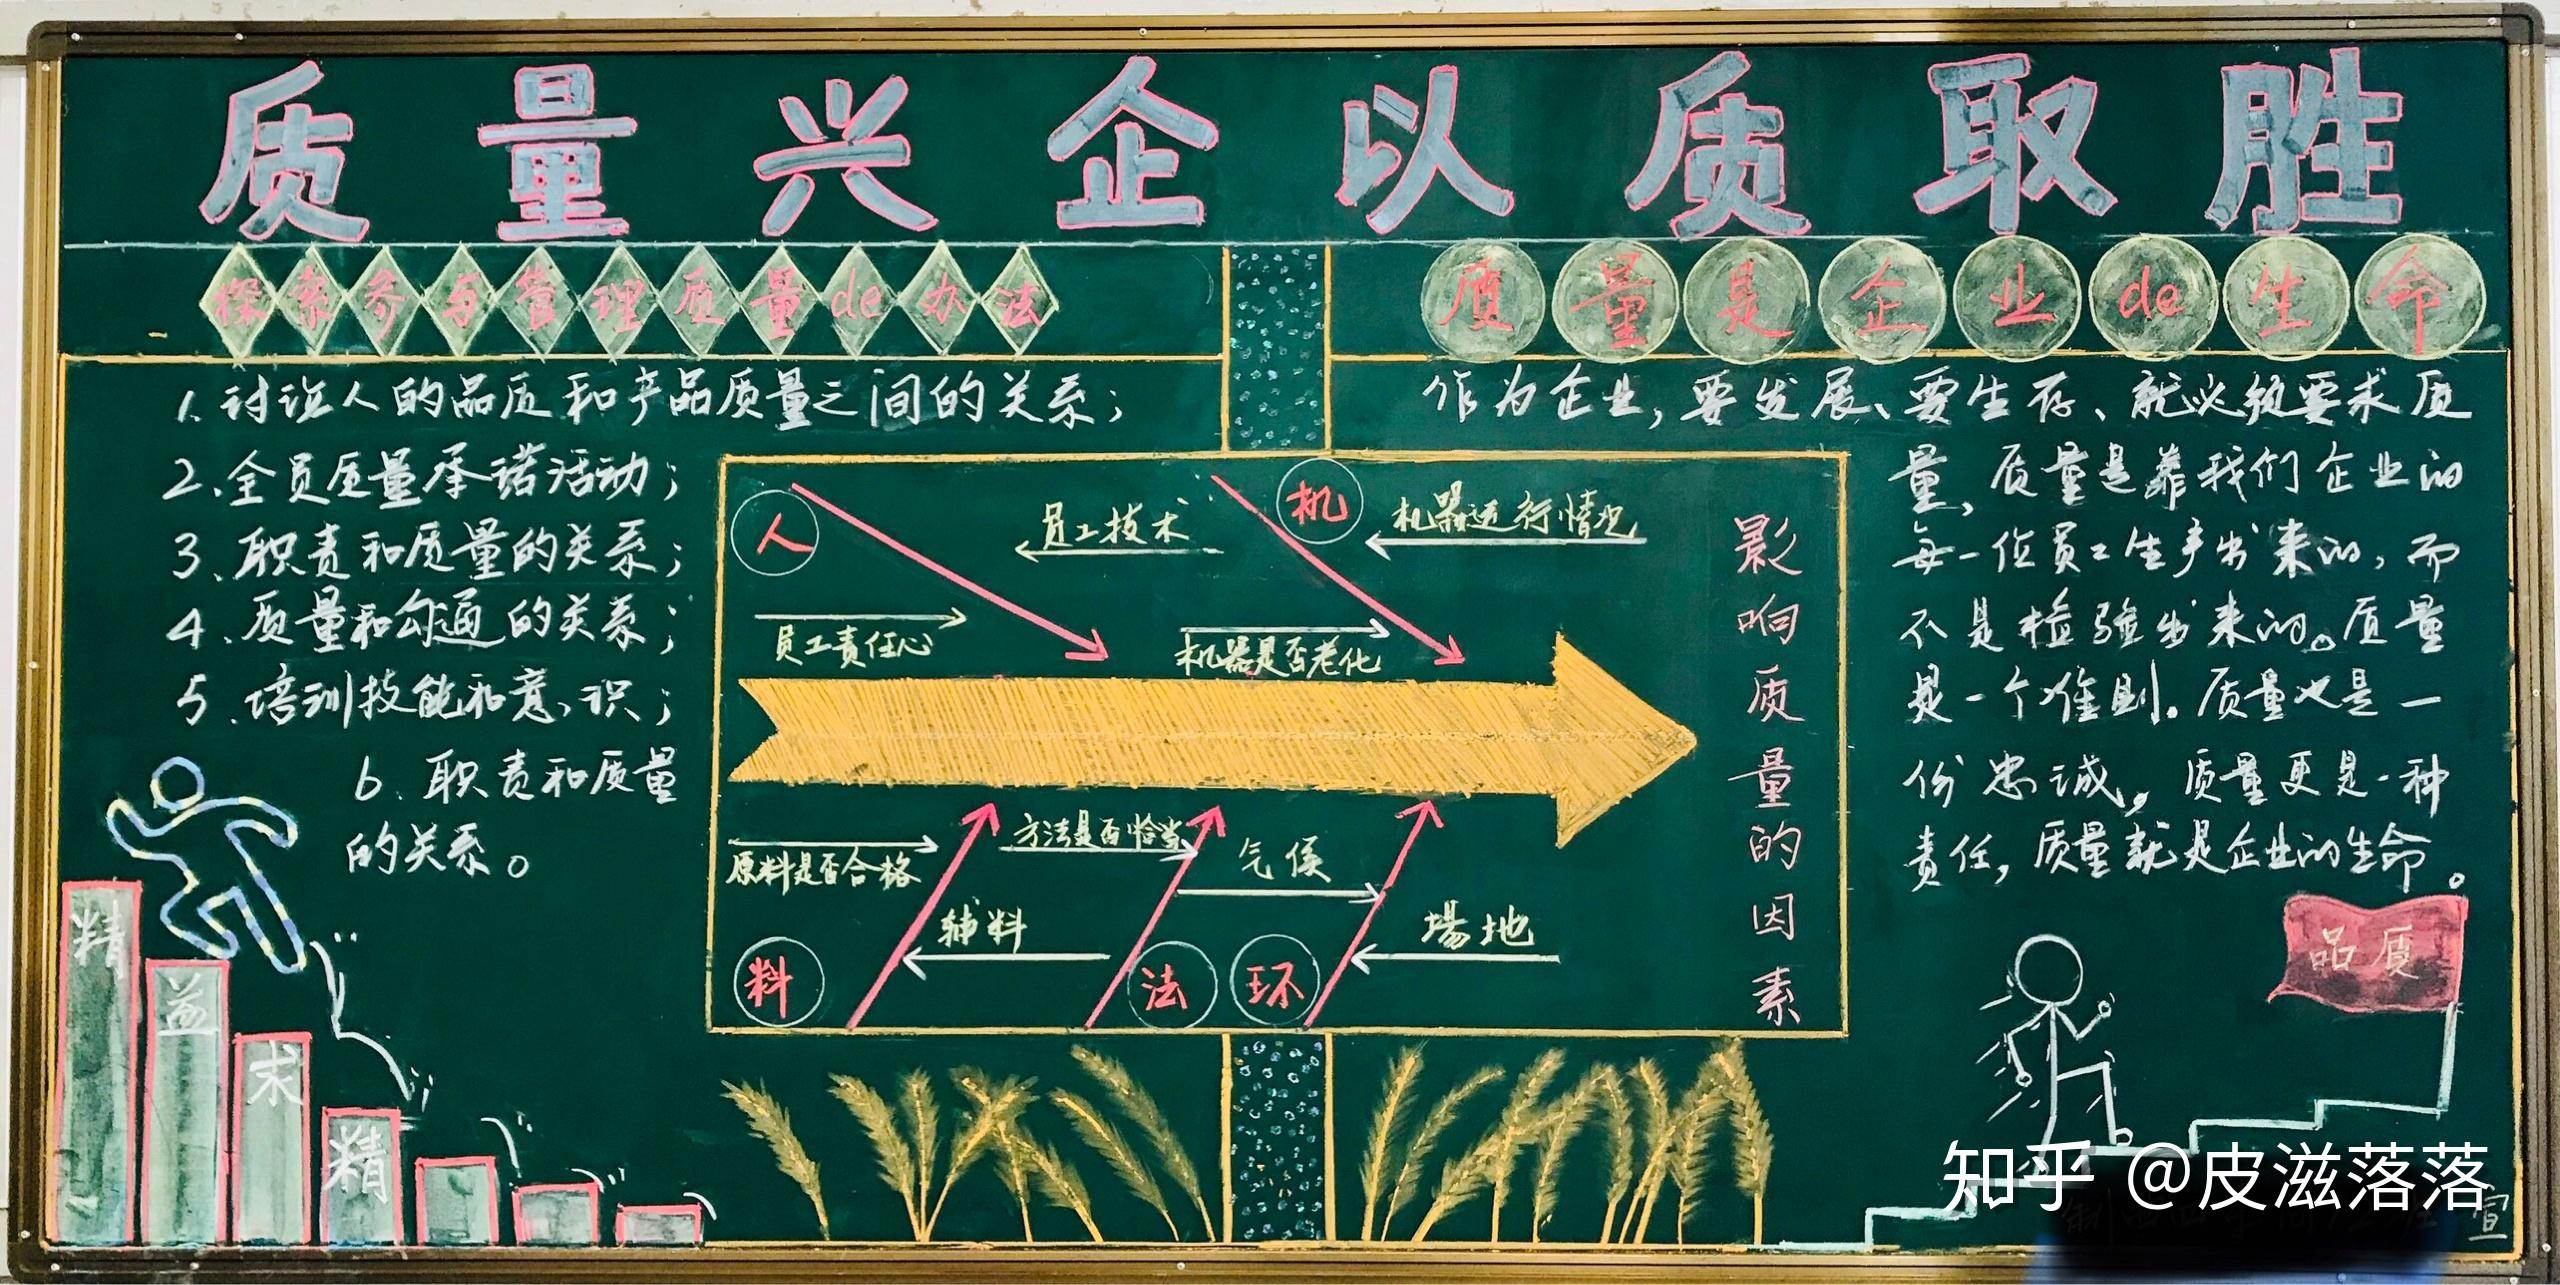 质量兴企以质取胜
探索参与管理质量de办法
1.讨论人的品质和产品质量之间的关系;
2、全员质量承诺活动;
3、职责和质量的关系;
4、质量和沟通的关系;
5、培训技能和意识;
6、职责和质量
的关系。
精益求精
人
机
员工技术
机器运行情况
员工责任心
机器是否老化
影响质量的因素
方法是否恰当
原料是否合格
气候
辅料
場地
料
法
环
质量是企业de生命
作为企业,要发展、要生存、就必须要求质
量,质量是靠我们企业的
每一位员工生产出来的,而
不是检验出来的。质量
是一个准则。质量也是一
份忠诚,质量更是一种
责任,质量就是企业的生命。
品质
知乎 @皮滋落落
宣